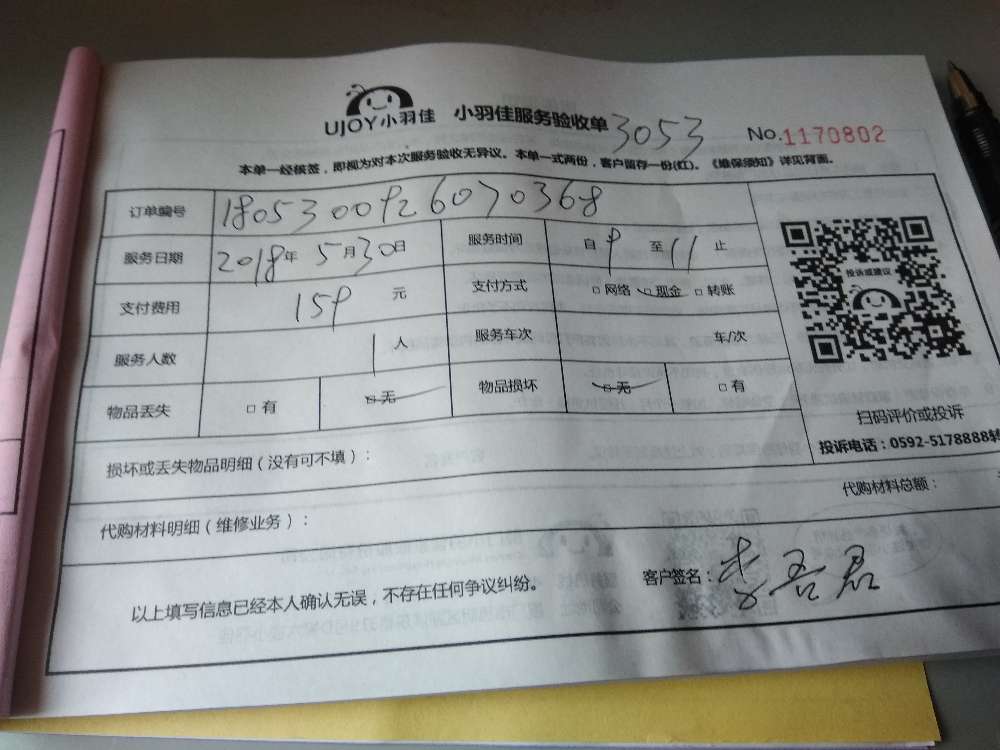 UJOY小羽佳 小羽佳服务验收单 3053 No.1170802
本单一经核签，即视为对本次服务验收无异议。本单一式两份，客户留存一份(红)。《维保须知》详见背面。
订单编号 1805300926070368
服务日期 2018年5月30日 服务时间 自9至11止
支付费用 159元 支付方式 □网络 □现金 □转账
服务人数 1人 服务车次 车/次
物品丢失 □有 □无 物品损坏 □无 □有
投诉或建议
扫码评价或投诉
投诉电话：0592-5178888转
损坏或丢失物品明细（没有可不填）：
代购材料明细（维修业务）： 代购材料总额：
以上填写信息已经本人确认无误，不存在任何争议纠纷。 客户签名：李吾君